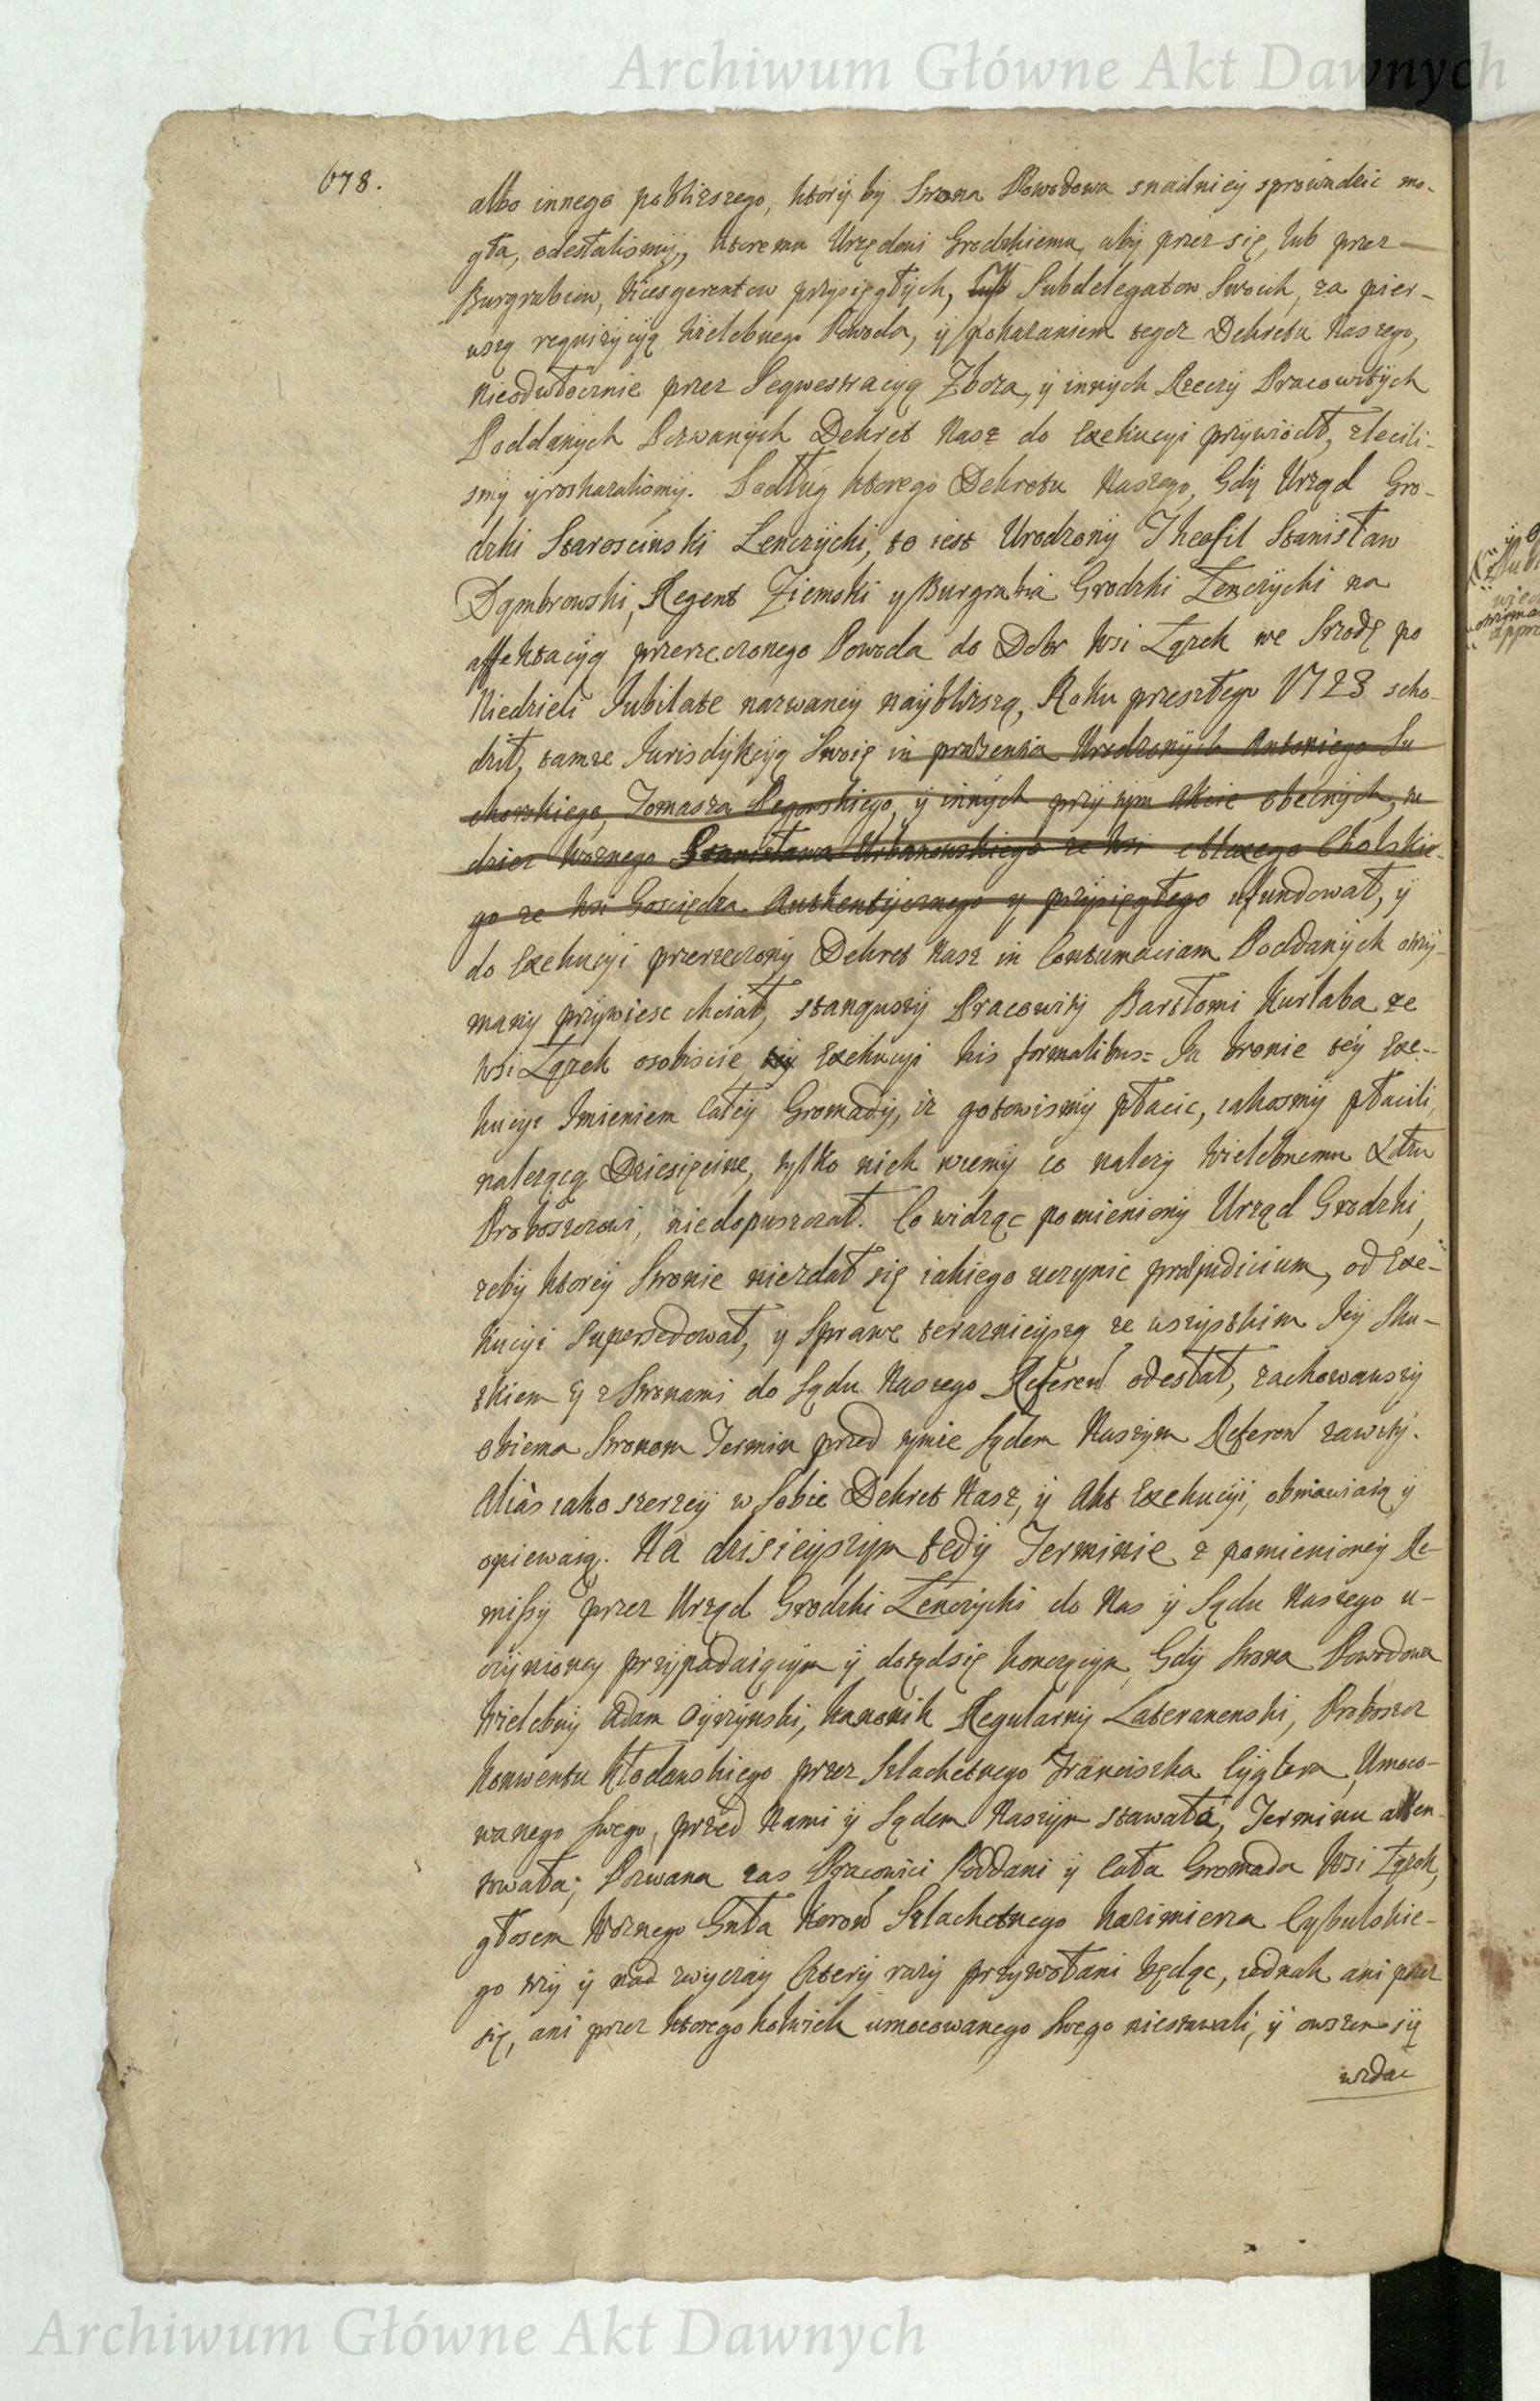 Archiwum Główne Akt Dawnych
678.
albo innego pobliższego, ktory by Strona Powodowa snadniey sprowadzic mo-
gła, odesłalismy, ktoremu Urzędowi Grodzkiemu, aby przez się, lub przez
Burgrabiow, Vicesgerentow przysięgłych, lub Subdelegatow Swoich, za pier-
wszą requizycyą Wielebnego Powoda, y pokazaniem tegoz Dekretu Naszego,
nieodwłocznie przez Seqwestracyą Zboza, y innych Rzeczy Pracowitych
Poddanych Pozwanych Dekret Nasz do Exekucyi przywiodł, zlecili-
smy y roskazalismy. Podług ktorego Dekretu Naszego, Gdy Urząd Gro-
dzki Starosciński Lenczycki, to iest Urodzony Theofil Stanisław
Dąmbrowski, Regent Ziemski y Burgrabia Grodzki Łenczycki na
affektacyą przerzeczonego Powoda do Dobr Wsi Łązek we Srzodę po
Niedzieli Jubilate nazwaney naybliższą, Roku przeszłego 1723 scho-
dził, tamze Jurisdykcyą Swoię in præsentia Urodzonych Antoniego Su
chorskiego, Tomasza Regowskiego, y innych przy tym Akcie obecnych, tu
dziez Woznego Stanisława Urbanowskiego ze Wsi Cholskie-
go ze Wsi Authentycznego y przysięgłego ufundował, y
do Exekucyi przerzeczony Dekret Nasz in Contumaciam Poddanych otrzy-
many przywiesc chciał, stanąwszy Pracowity Bartłomi Kurlaba ze
Wsi Łązek osobiscie Exekucyi his formalibus= Ja bronie tey Exe-
kucyi Imieniem Całey Gromady, iz gotowismy płacic, iakosmy płacili,
nalezącą Dziesięcinę, tylko niech wiemy co nalezy Wielebnemu Xdzu
Proboszczowi, niedopuszczał. Co widząc pomieniony Urząd Grodzki,
zeby ktorey Stronie niezdał się iakiego uczynic præjudicium, od Exe-
kucyi Supersedował, y Sprawę terazniejszą ze wszystkim Jey Sku-
tkiem y z Stronami do Sądu Naszego Referen odesłał, zachowawszy
obiema Stronom Termin przed tymze Sądem Naszym Referen zawity.
Aliàs iako szerzey w Sobie Dekret Nasz, y Akt Exekucyi, obmawiaią y
opiewaią. Na dzisieyszym tedy Terminie z pomienioney Re-
missy przez Urząd Grodzki Łenczycki do Nas y Sądu Naszego u-
czynioney przypadaiącym y dotądsię konczącym, Gdy Strona Powodowa
Wielebny Adam Cyrzynski, Kanonik Regularny Lateranenski, Proboszcz
Konwentu Kłodawskiego przez Szlachetnego Franciszka Cyglera, Umoco-
wanego Swego, przed Nami y Sądem Naszym stawała, Terminu atten-
towała; Pozwana zas Pracowici Poddani y Cała Gromada Wsi Łązek,
głosem Woznego Gnła Koron Szlachetnego Kazimierza Cybulskie-
go trzy y nad zwyczay Cztery razy przywołani będąc, iednak ani przez
się, ani przez ktoregokolwiek umocowanego Swego niestawali, y owszem się
wzdac
Archiwum Główne Akt Dawnych